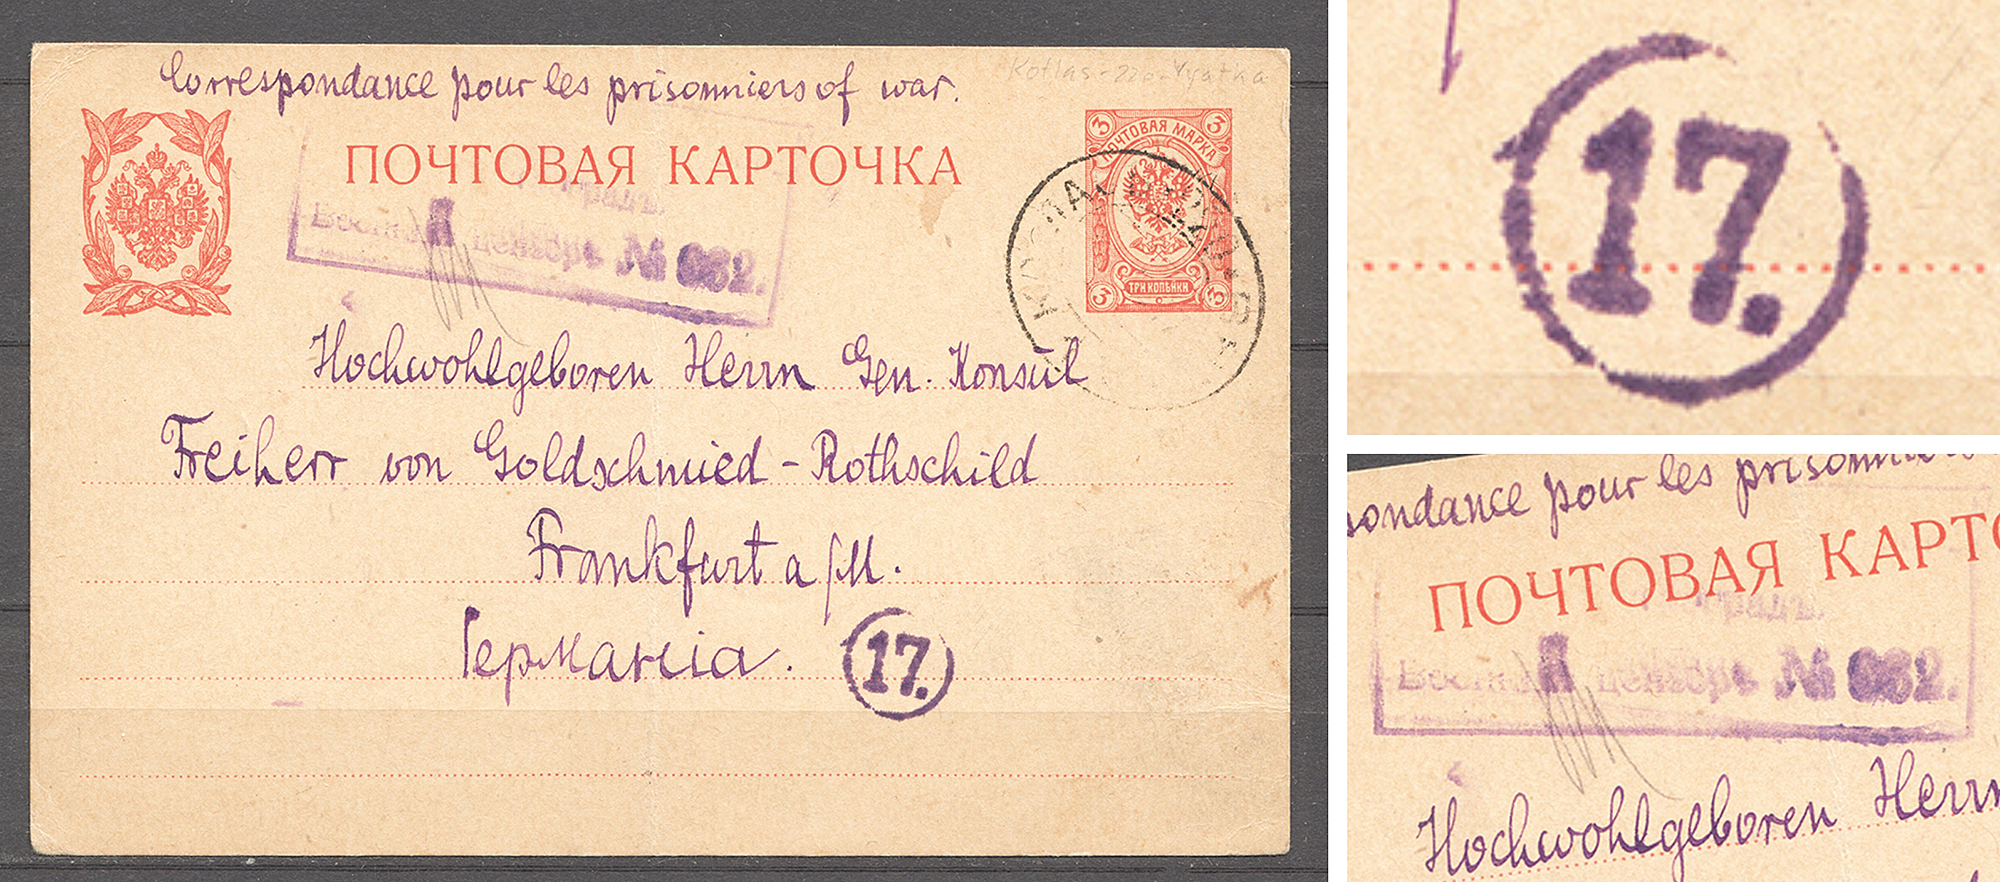 Correspondance pour les prisonniers of war.
Kotlas - 220 - Vyatka
ПОЧТОВАЯ КАРТОЧКА
3 3
ПОЧТОВАЯ МАРКА
3 3
ТРИ КОПѢЙКИ
градъ.
цензоръ № 632.
Hochwohlgeboren Herrn Gen. Konsul
Freiherr von Goldschmied - Rothschild
Frankfurt a/M.
Германія.
17.
17.
ondance pour les prisonniers
ПОЧТОВАЯ КАРТО
градъ.
цензоръ № 632.
Hochwohlgeboren Herrn